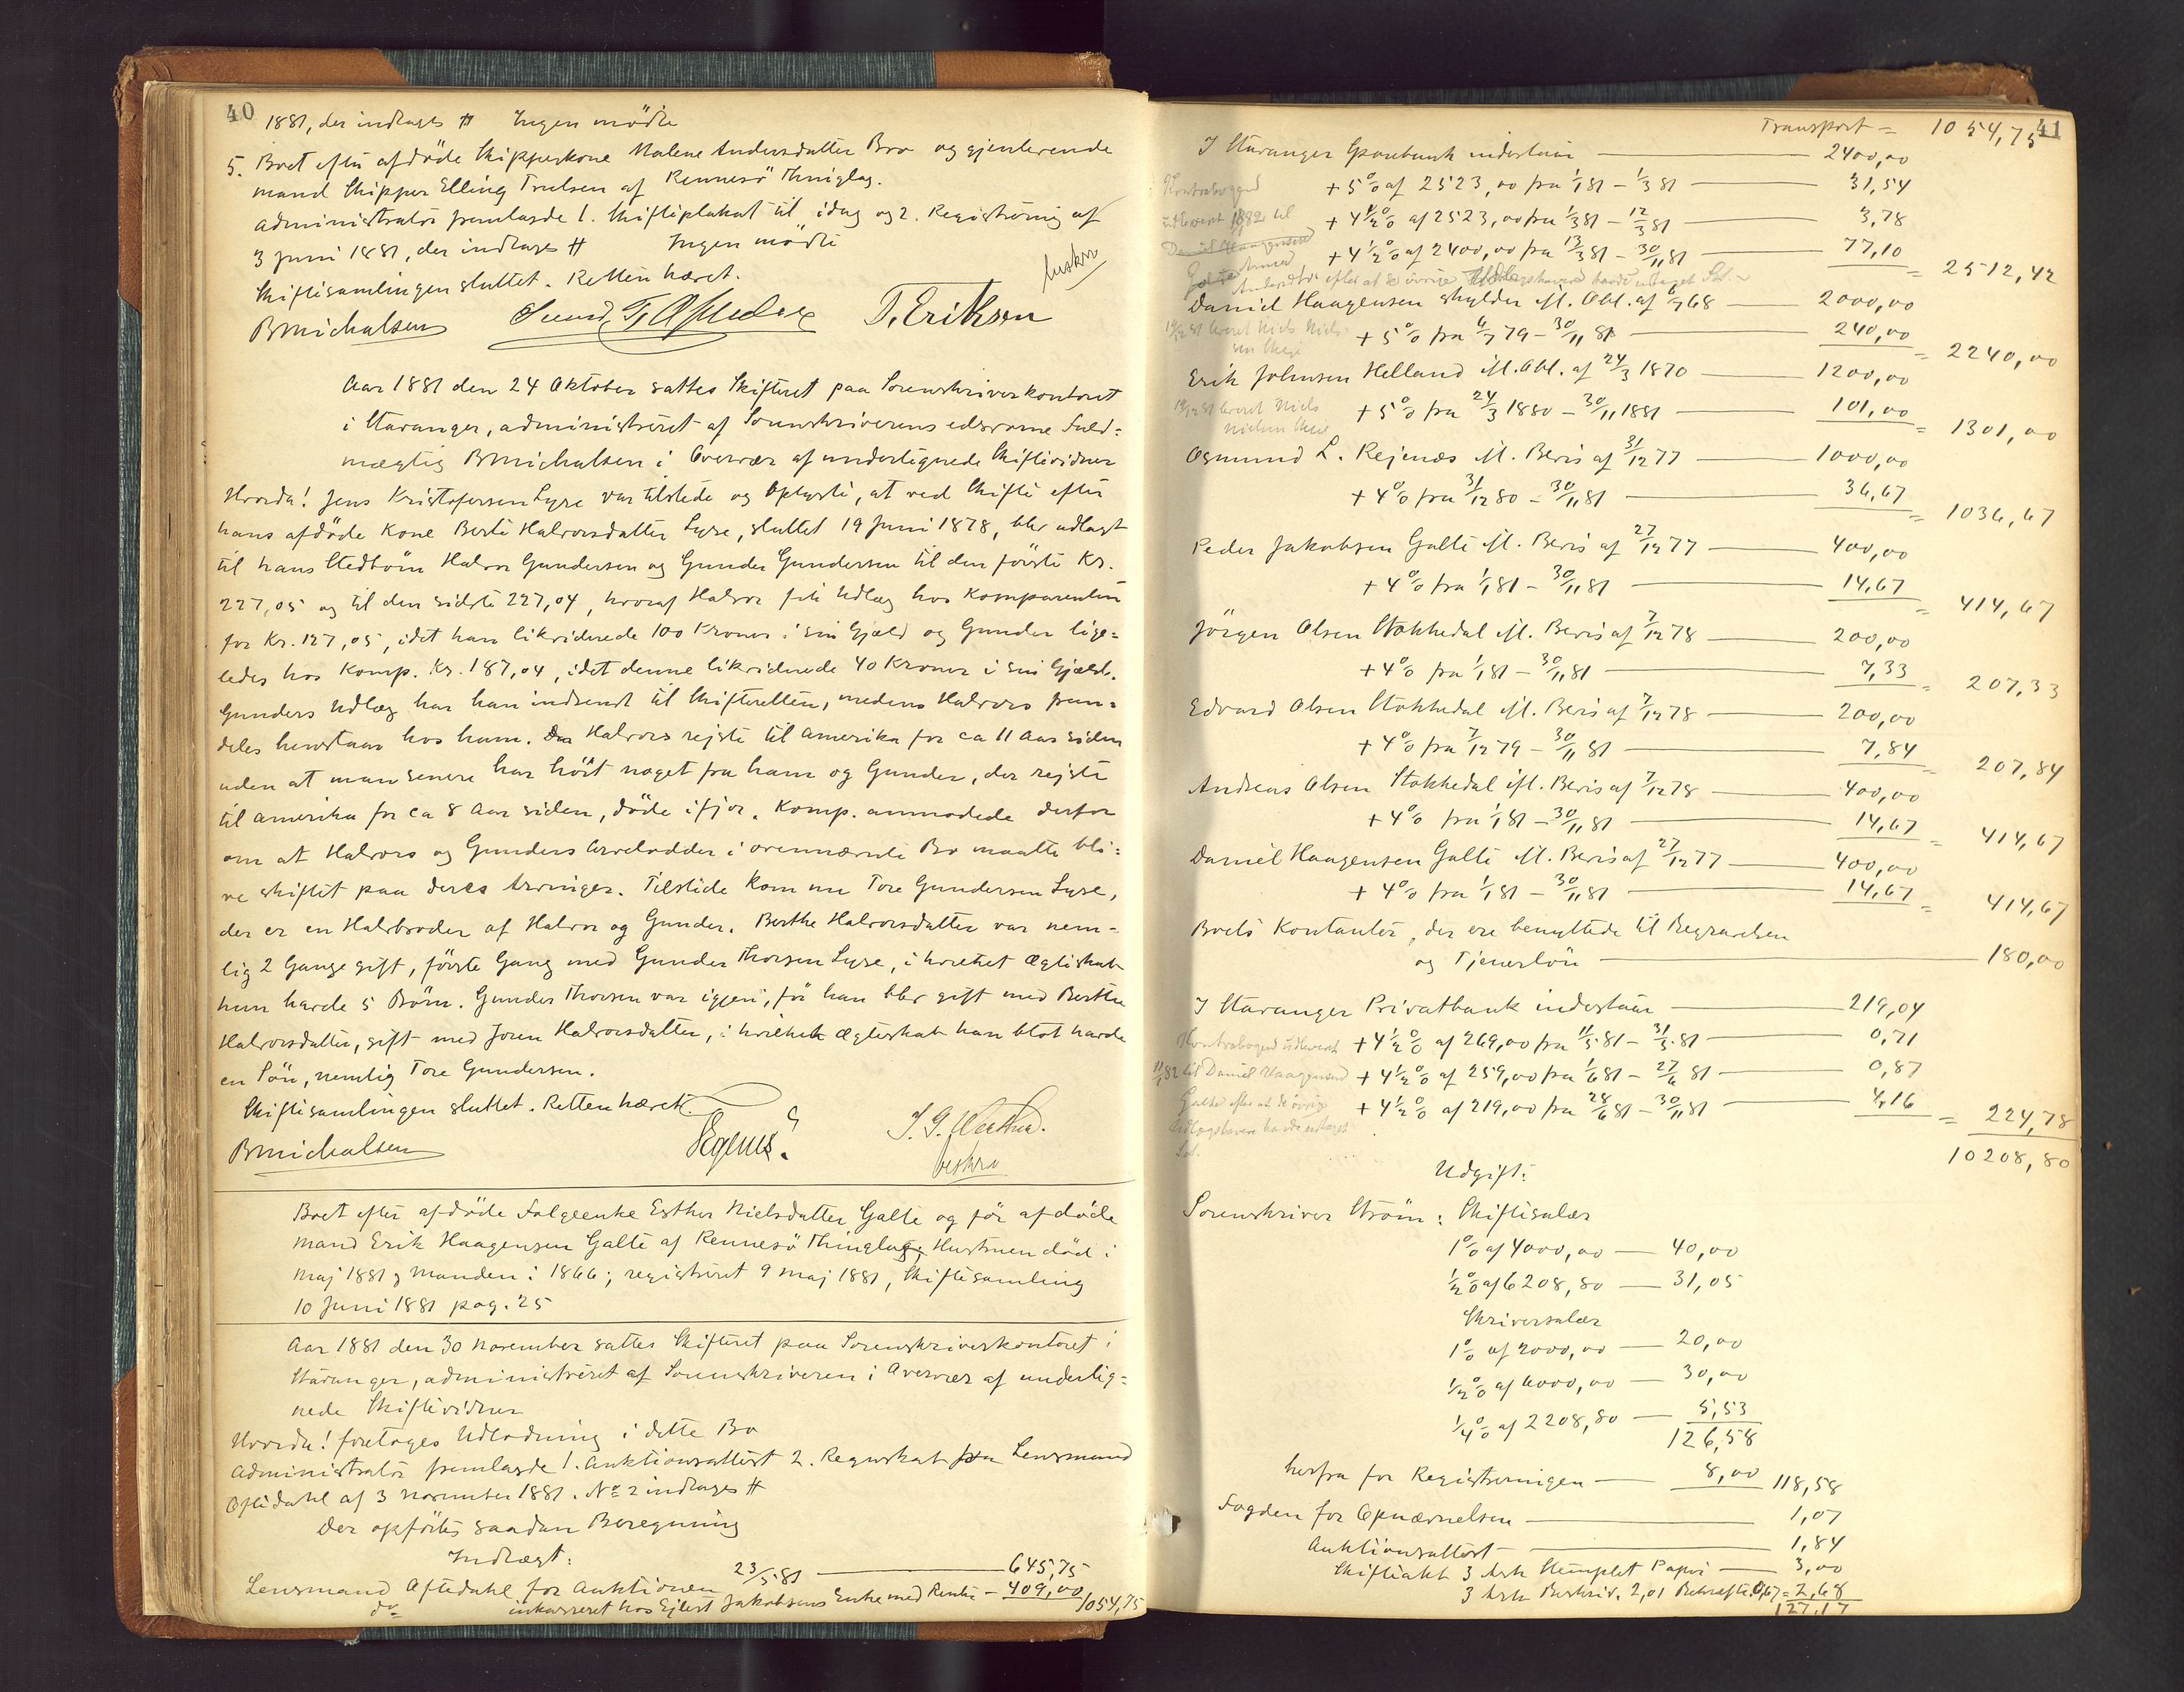 40
1881, der indtages # Ingen mödte
5. Boet efter afdöde Skipperkone Malene Andersdatter Bro og gjenlevende
mand Skipper Elling Trulsen af Rennesö Thinglag.
Administrator fremlagde 1. Skifteplakat til idag og 2. Registrering af
3 Juni 1881, der indtages # Ingen mödte
Skiftesamlingen sluttet. Retten hævet.
beskrv
BMichalsen T. Eriksen
Aar 1881 den 24 Oktober sattes Skifteret paa Sorenskriverkontoret
i Stavanger, administreret af Sorenskriverens edsvorne Fuld=
mægtig BMichalsen i Overvær af undertegnede Skiftevidner
Hvorda! Jens Kristofersen Lyse var tilstede og oplyste, at ved Skifte efter
hans afdöde Kone Berte Halvorsdatter Lyse, sluttet 19 Juni 1878, blev udlagt
til hans Stedbörn Halvor Gundersen og Gunder Gundersen til den förste Kr.
227,05 og til den sidste 227,04, hvoraf Halvor fik Udlæg hos Komparenten
for Kr. 127,05, idet han likviderede 100 Kroner i sin Gjæld og Gunder lige=
ledes hos Komp. Kr. 187,04, idet denne likviderede 40 Kroner i sin Gjæld.
Gunders Udlæg har han indsendt til Skifteretten, medens Halvors frem=
deles henstaar hos ham. Halvors rejste til Amerika for ca 11 Aar siden
uden at man senere har hört noget fra ham og Gunder, der rejste
til Amerika for ca 8 Aar siden, döde ifjor. Komp. anmodede derfor
om at Halvors og Gunders Arvelodder i ovennævnte Bo maatte bli=
ve skiftet paa deres Arvinger. Tilstede kom nu Tore Gundersen Lyse,
der er en Halvbroder af Halvor og Gunder. Berthe Halvorsdatter var nem-
lig 2 Gange gift, förste Gang med Gunder Thorsen Lyse, i hvilket Ægteskab
hun havde 5 Börn. Gunder Thorsen var igjen, för han blev gift med Berthe
Halvorsdatter, gift med Joren Halvorsdatter, i hvilket Ægteskab han blot havde
en Sön, nemlig Tore Gundersen.
Skiftesamlingen sluttet. Retten hævet.
BMichalsen
beskrv
Boet efter afdöde Folgeenke Esther Nielsdatter Galte og för afdöde
Mand Erik Haagensen Galte af Rennesö Thinglag, Hustruen död i
Maj 1881 og Manden i 1866; registreret 9 Maj 1881, Skiftesamling
10 Juni 1881 pag. 25
Aar 1881 den 30 November sattes Skifteret paa Sorenskriverkontoret i
Stavanger, administreret af Sorenskriveren i Overvær af underteg=
nede Skiftevidner
Hvorda! foretoges Udlodning i dette Bo
Administrator fremlagde 1. Auktionsattest 2. Regnskab fra Lensmand
Oftedahl af 3 November 1881. No 2 indtages #
Der opförtes saadan Beregning
Indtægt:
Lensmand Oftedahl for Auktionen 23/5 81 — 645,75
do inkasseret hos Ejlert Jakobsens Enke med Rente — 409,00 1054,75
41
Transport = 1054,75
I Stavanger Sparebank indestaar — 2400,00
Kontrabogen
+ 5% af 2523,00 fra 1/1 81 - 1/3 81 — 31,54
udleveret 1882 til
+ 4 1/2% af 2523,00 fra 1/3 81 - 12/3 81 — 3,78
Daniel Haagensen
+ 4 1/2% af 2400,00 fra 13/3 81 - 30/11 81 — 77,10 = 2512,42
efter at de övrige Udlægshavere havde
Daniel Haagensen skylder ifl. Obl. af 6/7 68 — 2000,00
19/12 81 leveret Niels Niels-
sen
+ 5% fra 6/7 79 - 30/11 81 — 240,00 = 2240,00
Erik Johnsen Helland ifl. Obl. af 24/3 1870 — 1200,00
19/12 81 leveret Niels
Nielsen
+ 5% fra 24/3 1880 - 30/11 1881 — 101,00 = 1301,00
Osmund L. Rejenæs ifl. Bevis af 31/12 77 — 1000,00
+ 4% fra 31/12 80 - 30/11 81 — 36,67 = 1036,67
Peder Jakobsen Galte ifl. Bevis af 27/12 77 — 400,00
+ 4% fra 1/1 81 - 30/11 81 — 14,67 = 414,67
Jörgen Olsen Stokkedal ifl. Bevis af 7/12 78 — 200,00
+ 4% fra 1/1 81 - 30/11 81 — 7,33 = 207,33
Edvard Olsen Stokkedal ifl. Bevis af 7/12 78 — 200,00
+ 4% fra 7/12 79 - 30/11 81 — 7,84 = 207,84
Andreas Olsen Stokkedal ifl. Bevis af 7/12 78 — 400,00
+ 4% fra 1/1 81 - 30/11 81 — 14,67 = 414,67
Daniel Haagensen Galte ifl. Bevis af 27/12 77 — 400,00
+ 4% fra 1/1 81 - 30/11 81 — 14,67 = 414,67
Boets Kontanter, der ere benyttede til Begravelsen
og Tjenerlön — 180,00
I Stavanger Privatbank indestaar — 219,04
Kontrabogen udleveret
+ 4 1/2% af 269,00 fra 11/5 81 - 31/5 81 — 0,71
til Daniel Haagensen
+ 4 1/2% af 259,00 fra 1/6 81 - 27/6 81 — 0,87
Galte efter at de övrige
+ 4 1/2% af 219,00 fra 28/6 81 - 30/11 81 — 4,16 = 224,78
Udlægshavere havde
10208,80
Udgift:
Sorenskriver Ström: Skiftesalær
1% af 4000,00 — 40,00
1/2% af 6208,80 — 31,05
Skriversalær
1% af 2000,00 — 20,00
1/2% af 6000,00 — 30,00
1/4% af 2208,80 — 5,53
126,58
herfra for Registreringen — 8,00 118,58
Fogden for Opnævnelsen — 1,07
Auktionsattest — 1,84
Skifteakt 3 Ark Stemplet Papir — 3,00
3 Ark Beskriv. 2,01 Bekræft. 0,67 = 2,68
127,17